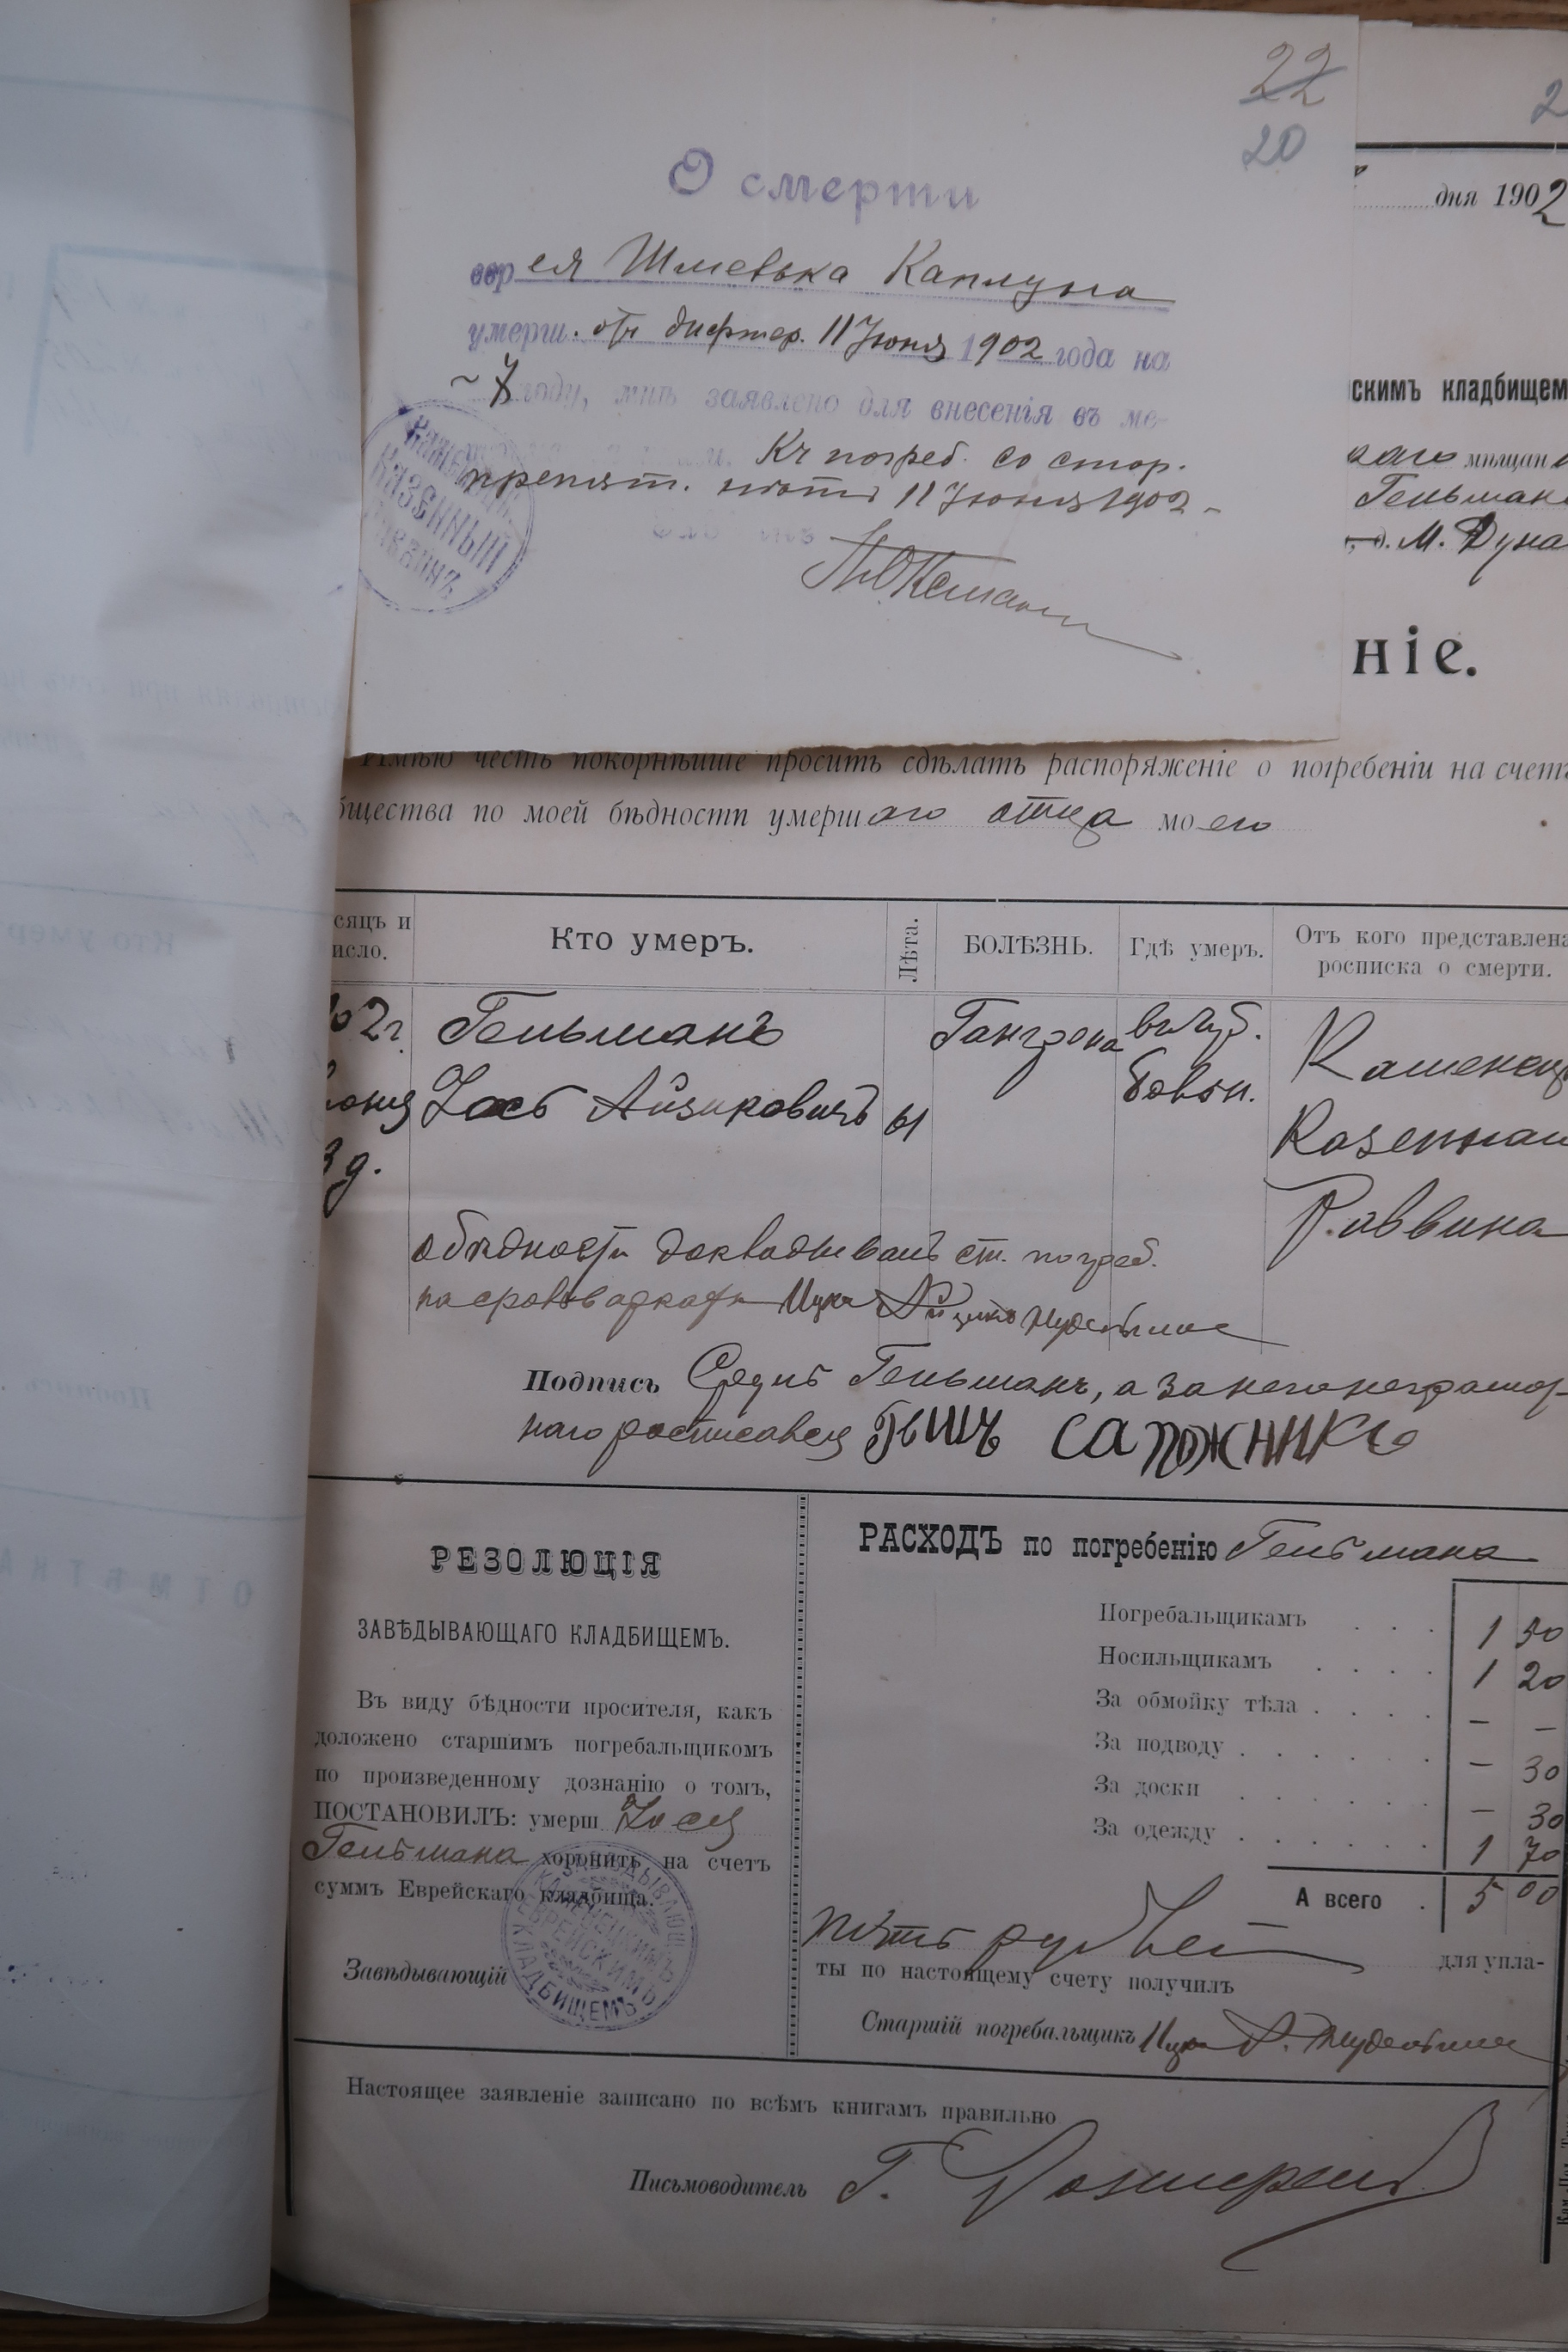 22
20
О смерти
еврея Шлиевька Каплуна
умерш. отъ дифтер. 11 Июня 1902 года на
~ 7 году, мнѣ заявлено для внесенія въ ме-
Къ погреб. со стор.
препят. нѣтъ 11 Июня 1902 -
КАЗЕННЫЙ
РАВВИНЪ
2
дня 1902
скимъ кладбищем
каго мѣщани
Гельмана
д. М. Дуна
ніе.
Имѣю честь покорнѣйше просить сдѣлать распоряженіе о погребеніи на счетъ
бщества по моей бѣдности умершаго отца моего
сяцъ и
исло.
Кто умеръ.
Лѣта.
БОЛѢЗНЬ.
Гдѣ умеръ.
Отъ кого представлена
росписка о смерти.
02 г.
Июня
3 д.
Гельманъ
Иось Айзиковичъ
61
Гангрена
въ Губ.
больн.
Каменец
Казеннаго
Раввина
о бѣдности докладываетъ ст. погреб.
Подпись Сруль Гельманъ, а за него неграмот-
наго росписався Гершъ сапожникъ
РЕЗОЛЮЦІЯ
ЗАВѢДЫВАЮЩАГО КЛАДБИЩЕМЪ.
Въ виду бѣдности просителя, какъ
доложено старшимъ погребальщикомъ
по произведенному дознанію о томъ,
ПОСТАНОВИЛЪ: умерш Иося
Гельмана хоронить на счетъ
суммъ Еврейскаго кладбища.
Завѣдывающій
ЗАВѢДЫВАЮЩ КАМЕНЕЦКИМЪ ЕВРЕЙСКИМЪ КЛАДБИЩЕМЪ
РАСХОДЪ по погребенію Гельмана
Погребальщикамъ . . . 1 50
Носильщикамъ . . . . 1 20
За обмойку тѣла . . . . — —
За подводу . . . . . . — 30
За доски . . . . . . — 30
За одежду . . . . . . 1 70
А всего . 5 00
пять рублей для упла-
ты по настоящему счету получилъ
Старшій погребальщикъ
Настоящее заявленіе записано по всѣмъ книгамъ правильно
Письмоводитель Г.